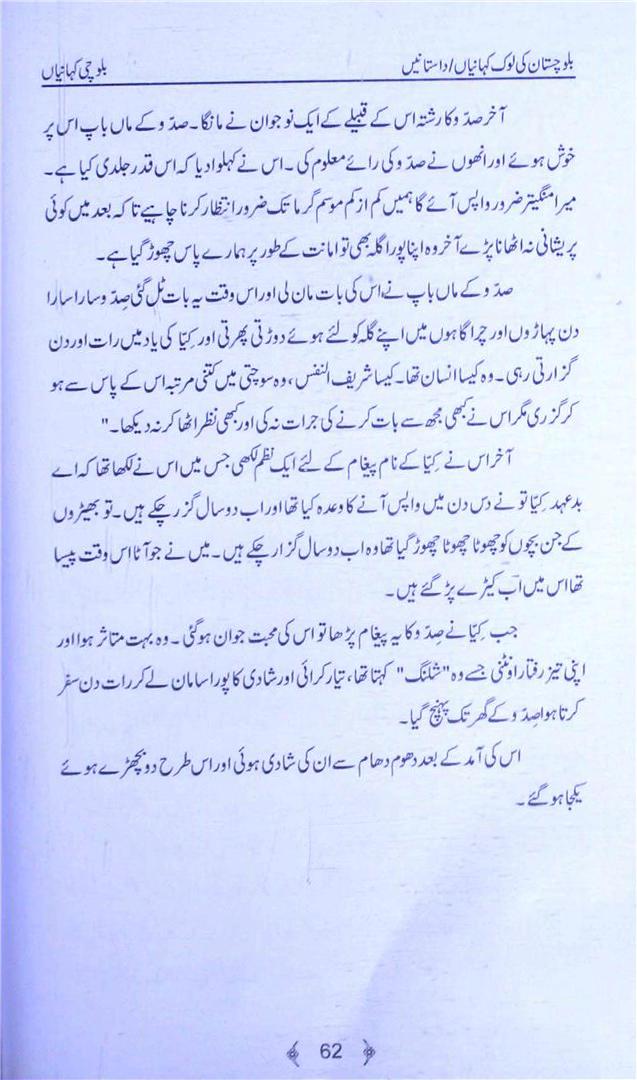 بلوچستان کی لوک کہانیاں/داستانیں بلوچی کہانیاں
آخر صدّو کا رشتہ اس کے قبیلے کے ایک نوجوان نے مانگا۔ صدّو کے ماں باپ اس پر
خوش ہوئے اور انھوں نے صدّو کی رائے معلوم کی۔ اس نے کہلوا دیا کہ اس قدر جلدی کیا ہے۔
میرا منگیتر ضرور واپس آئے گا ہمیں کم از کم موسم گرما تک ضرور انتظار کرنا چاہیے تاکہ بعد میں کوئی
پریشانی نہ اٹھانا پڑے آخر وہ اپنا پورا گلہ بھی تو امانت کے طور پر ہمارے پاس چھوڑ گیا ہے۔
صدّو کے ماں باپ نے اس کی بات مان لی اور اس وقت یہ بات ٹل گئی صِدّو سارا سارا
دن پہاڑوں اور چراگاہوں میں اپنے گلہ کو لئے ہوئے دوڑتی پھرتی اور کِیّا کی یاد میں رات اور دن
گزارتی رہی۔ وہ کیسا انسان تھا۔ کیسا شریف النفس، وہ سوچتی میں کتنی مرتبہ اس کے پاس سے ہو
کر گزری مگر اس نے کبھی مجھ سے بات کرنے کی جرات نہ کی اور کبھی نظر اٹھا کر نہ دیکھا۔"
آخر اس نے کِیّا کے نام پیغام کے لئے ایک نظم لکھی جس میں اس نے لکھا تھا کہ اے
بدعہد کِیّا تو نے دس دن میں واپس آنے کا وعدہ کیا تھا اور اب دو سال گزر چکے ہیں۔ تو بھیڑوں
کے جن بچوں کو چھوٹا چھوٹا چھوڑ گیا تھا وہ اب دو سال گزار چکے ہیں۔ میں نے جو آٹا اس وقت پیسا
تھا اس میں اب کیڑے پڑ گئے ہیں۔
جب کِیّا نے صِدّو کا یہ پیغام پڑھا تو اس کی محبت جوان ہو گئی۔ وہ بہت متاثر ہوا اور
اپنی تیز رفتار اونٹنی جسے وہ "شلنگ" کہتا تھا، تیار کرائی اور شادی کا پورا سامان لے کر رات دن سفر
کرتا ہوا صِدّو کے گھر تک پہنچ گیا۔
اس کی آمد کے بعد دھوم دھام سے ان کی شادی ہوئی اور اس طرح دو بچھڑے ہوئے
یکجا ہو گئے۔
62